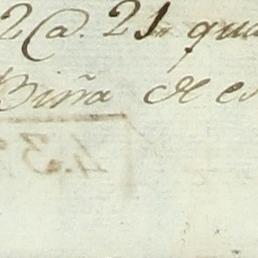 2@. 21 qua
Biña de es